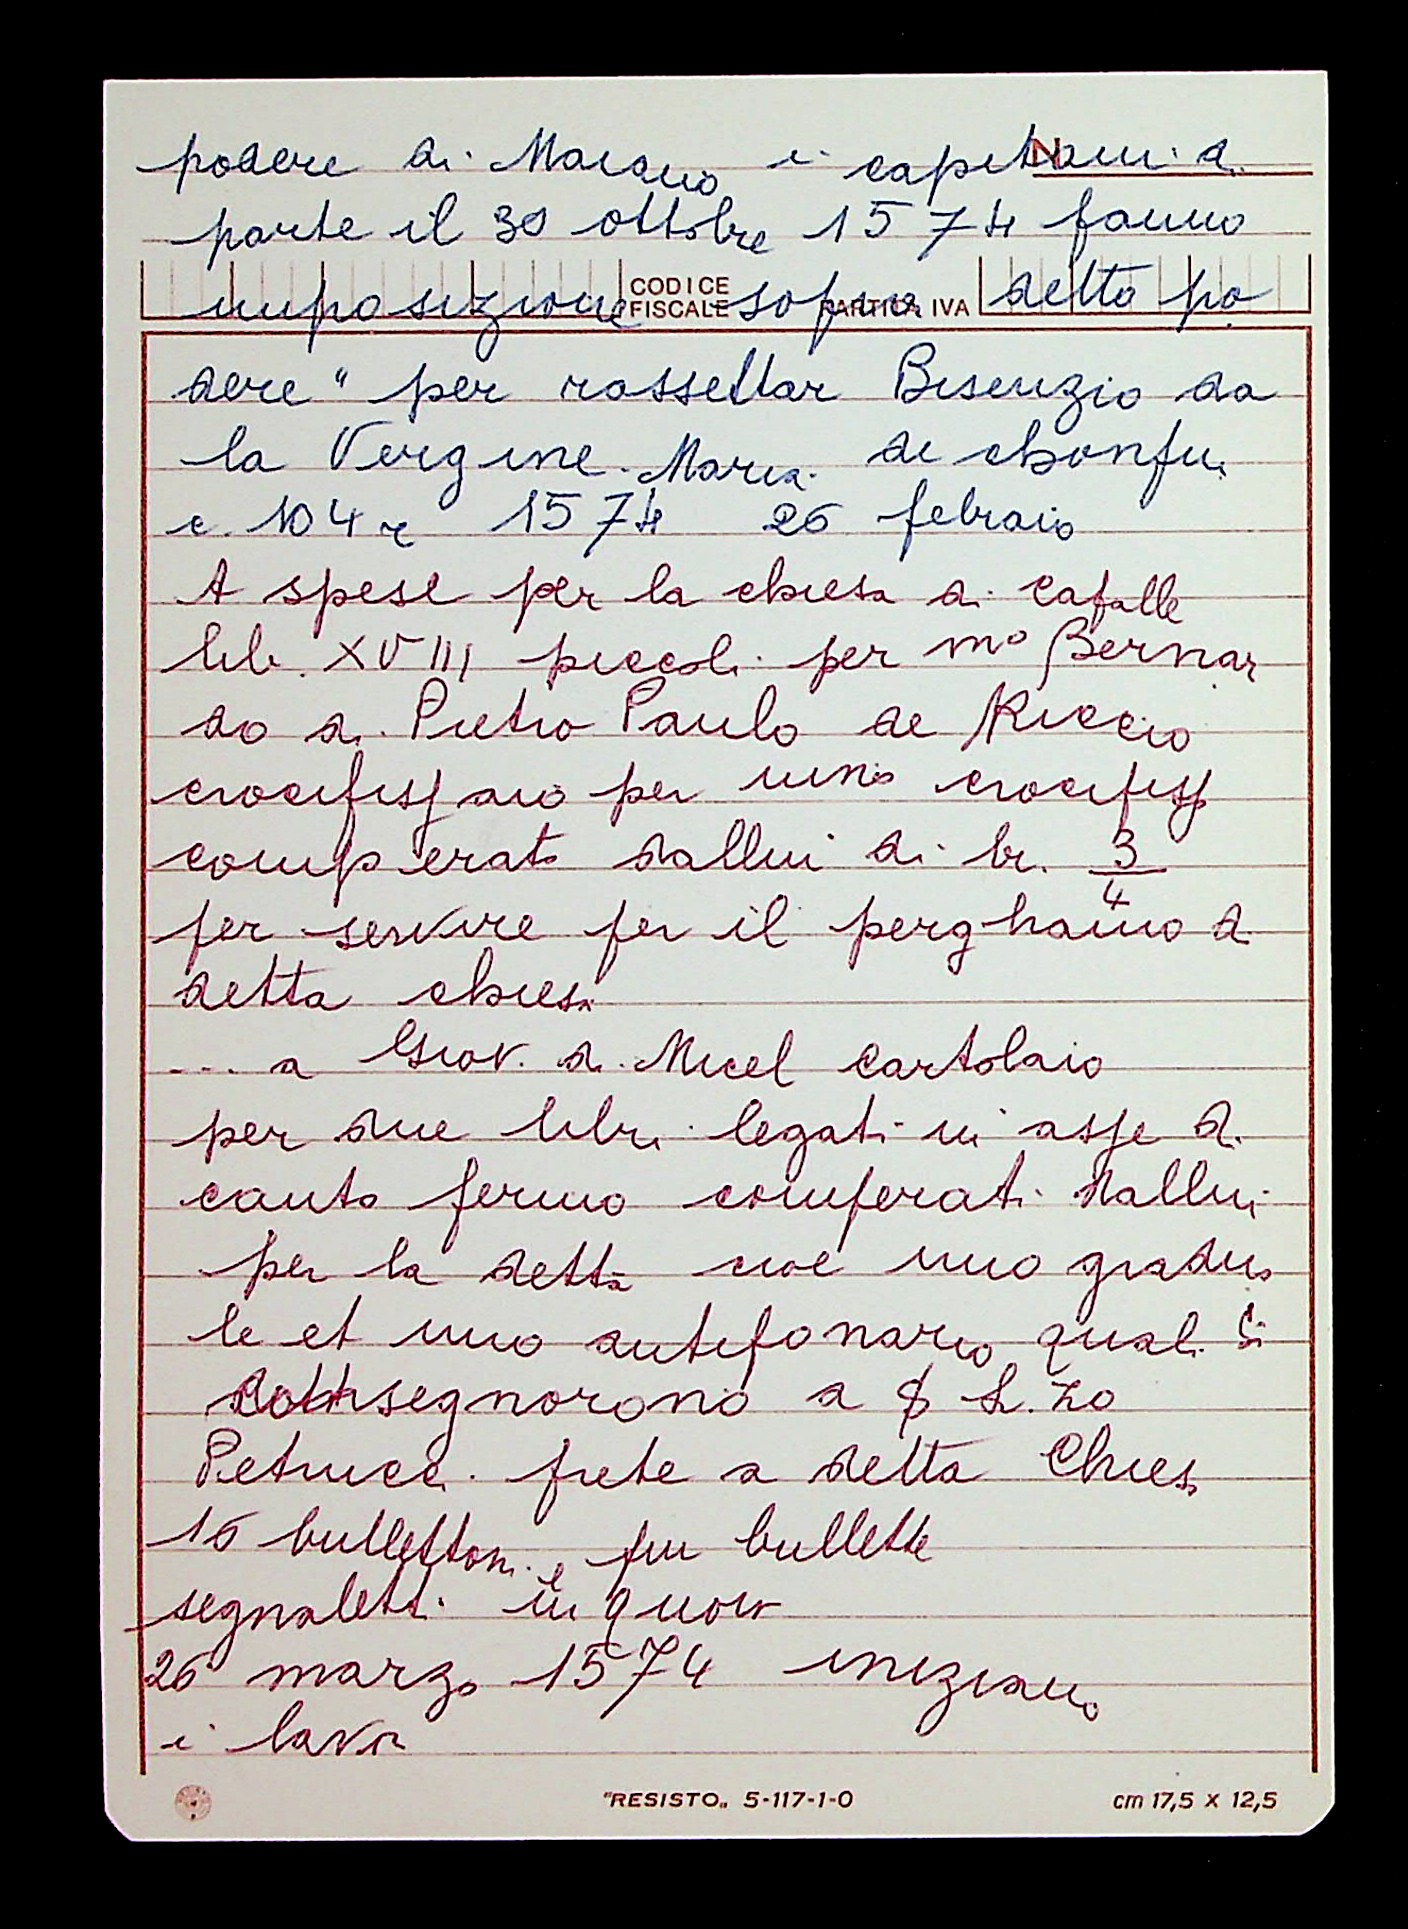 podere di Maiano i capitani di
N
parte il 30 ottobre 1574 fanno
CODICE FISCALE PARTITA IVA
imposizione sopra detto po
dere " per rassettar Bisenzio da
la Vergine Maria di chonfi
c. 104 r 1574 26 febraio
A spese per la chiesa di Cafalle
lib. XVIII piccoli per mº Bernar
do di Pietro Paulo del Riccio
crocifissaio per uno crocifisso
comperato dallui di br. 3/4
per servire per il perghamo di
detta chiesa
... a Giov. di Micel cartolaio
per due libri legati in asse di
canto fermo comperati dallui
per la detta cioè uno gradua
le et uno antifonario quali si
consegnorono a S L.zo
Petrucci prete a detta Chiesa
16 bullettoni e più bullette
segnaletti in quoio
26 marzo 1574 iniziano
i lavori
"RESISTO„ 5-117-1-0 cm 17,5 x 12,5